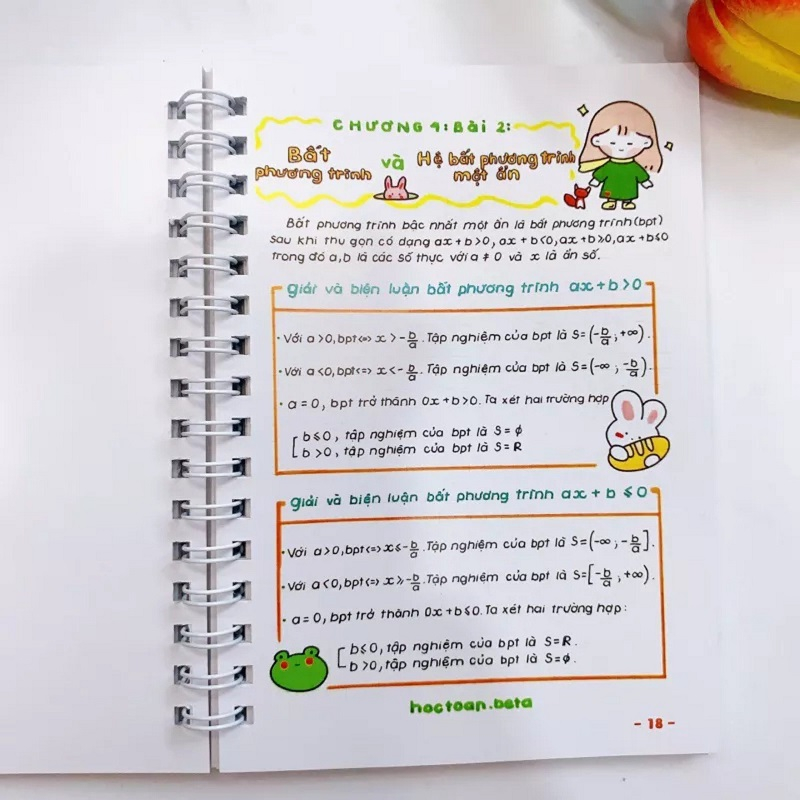 CHƯƠNG 4: Bài 2:
Bất phương trình và Hệ bất phương trình một ẩn
Bất phương trình bậc nhất một ẩn là bất phương trình (bpt)
sau khi thu gọn có dạng ax + b > 0, ax + b < 0, ax + b ≥ 0, ax + b ≤ 0
trong đó a, b là các số thực với a ≠ 0 và x là ẩn số.
giải và biện luận bất phương trình ax + b > 0
• Với a > 0, bpt <=> x > -b/a. Tập nghiệm của bpt là S = (-b/a ; +∞).
• Với a < 0, bpt <=> x < -b/a. Tập nghiệm của bpt là S = (-∞ ; -b/a).
• a = 0, bpt trở thành 0x + b > 0. Ta xét hai trường hợp
b ≤ 0, tập nghiệm của bpt là S = ϕ
b > 0, tập nghiệm của bpt là S = R
giải và biện luận bất phương trình ax + b ≤ 0
• Với a > 0, bpt <=> x ≤ -b/a. Tập nghiệm của bpt là S = (-∞ ; -b/a].
• Với a < 0, bpt <=> x ≥ -b/a. Tập nghiệm của bpt là S = [-b/a ; +∞).
• a = 0, bpt trở thành 0x + b ≤ 0. Ta xét hai trường hợp:
b ≤ 0, tập nghiệm của bpt là S = R.
b > 0, tập nghiệm của bpt là S = ϕ.
hoctoan.beta
- 18 -